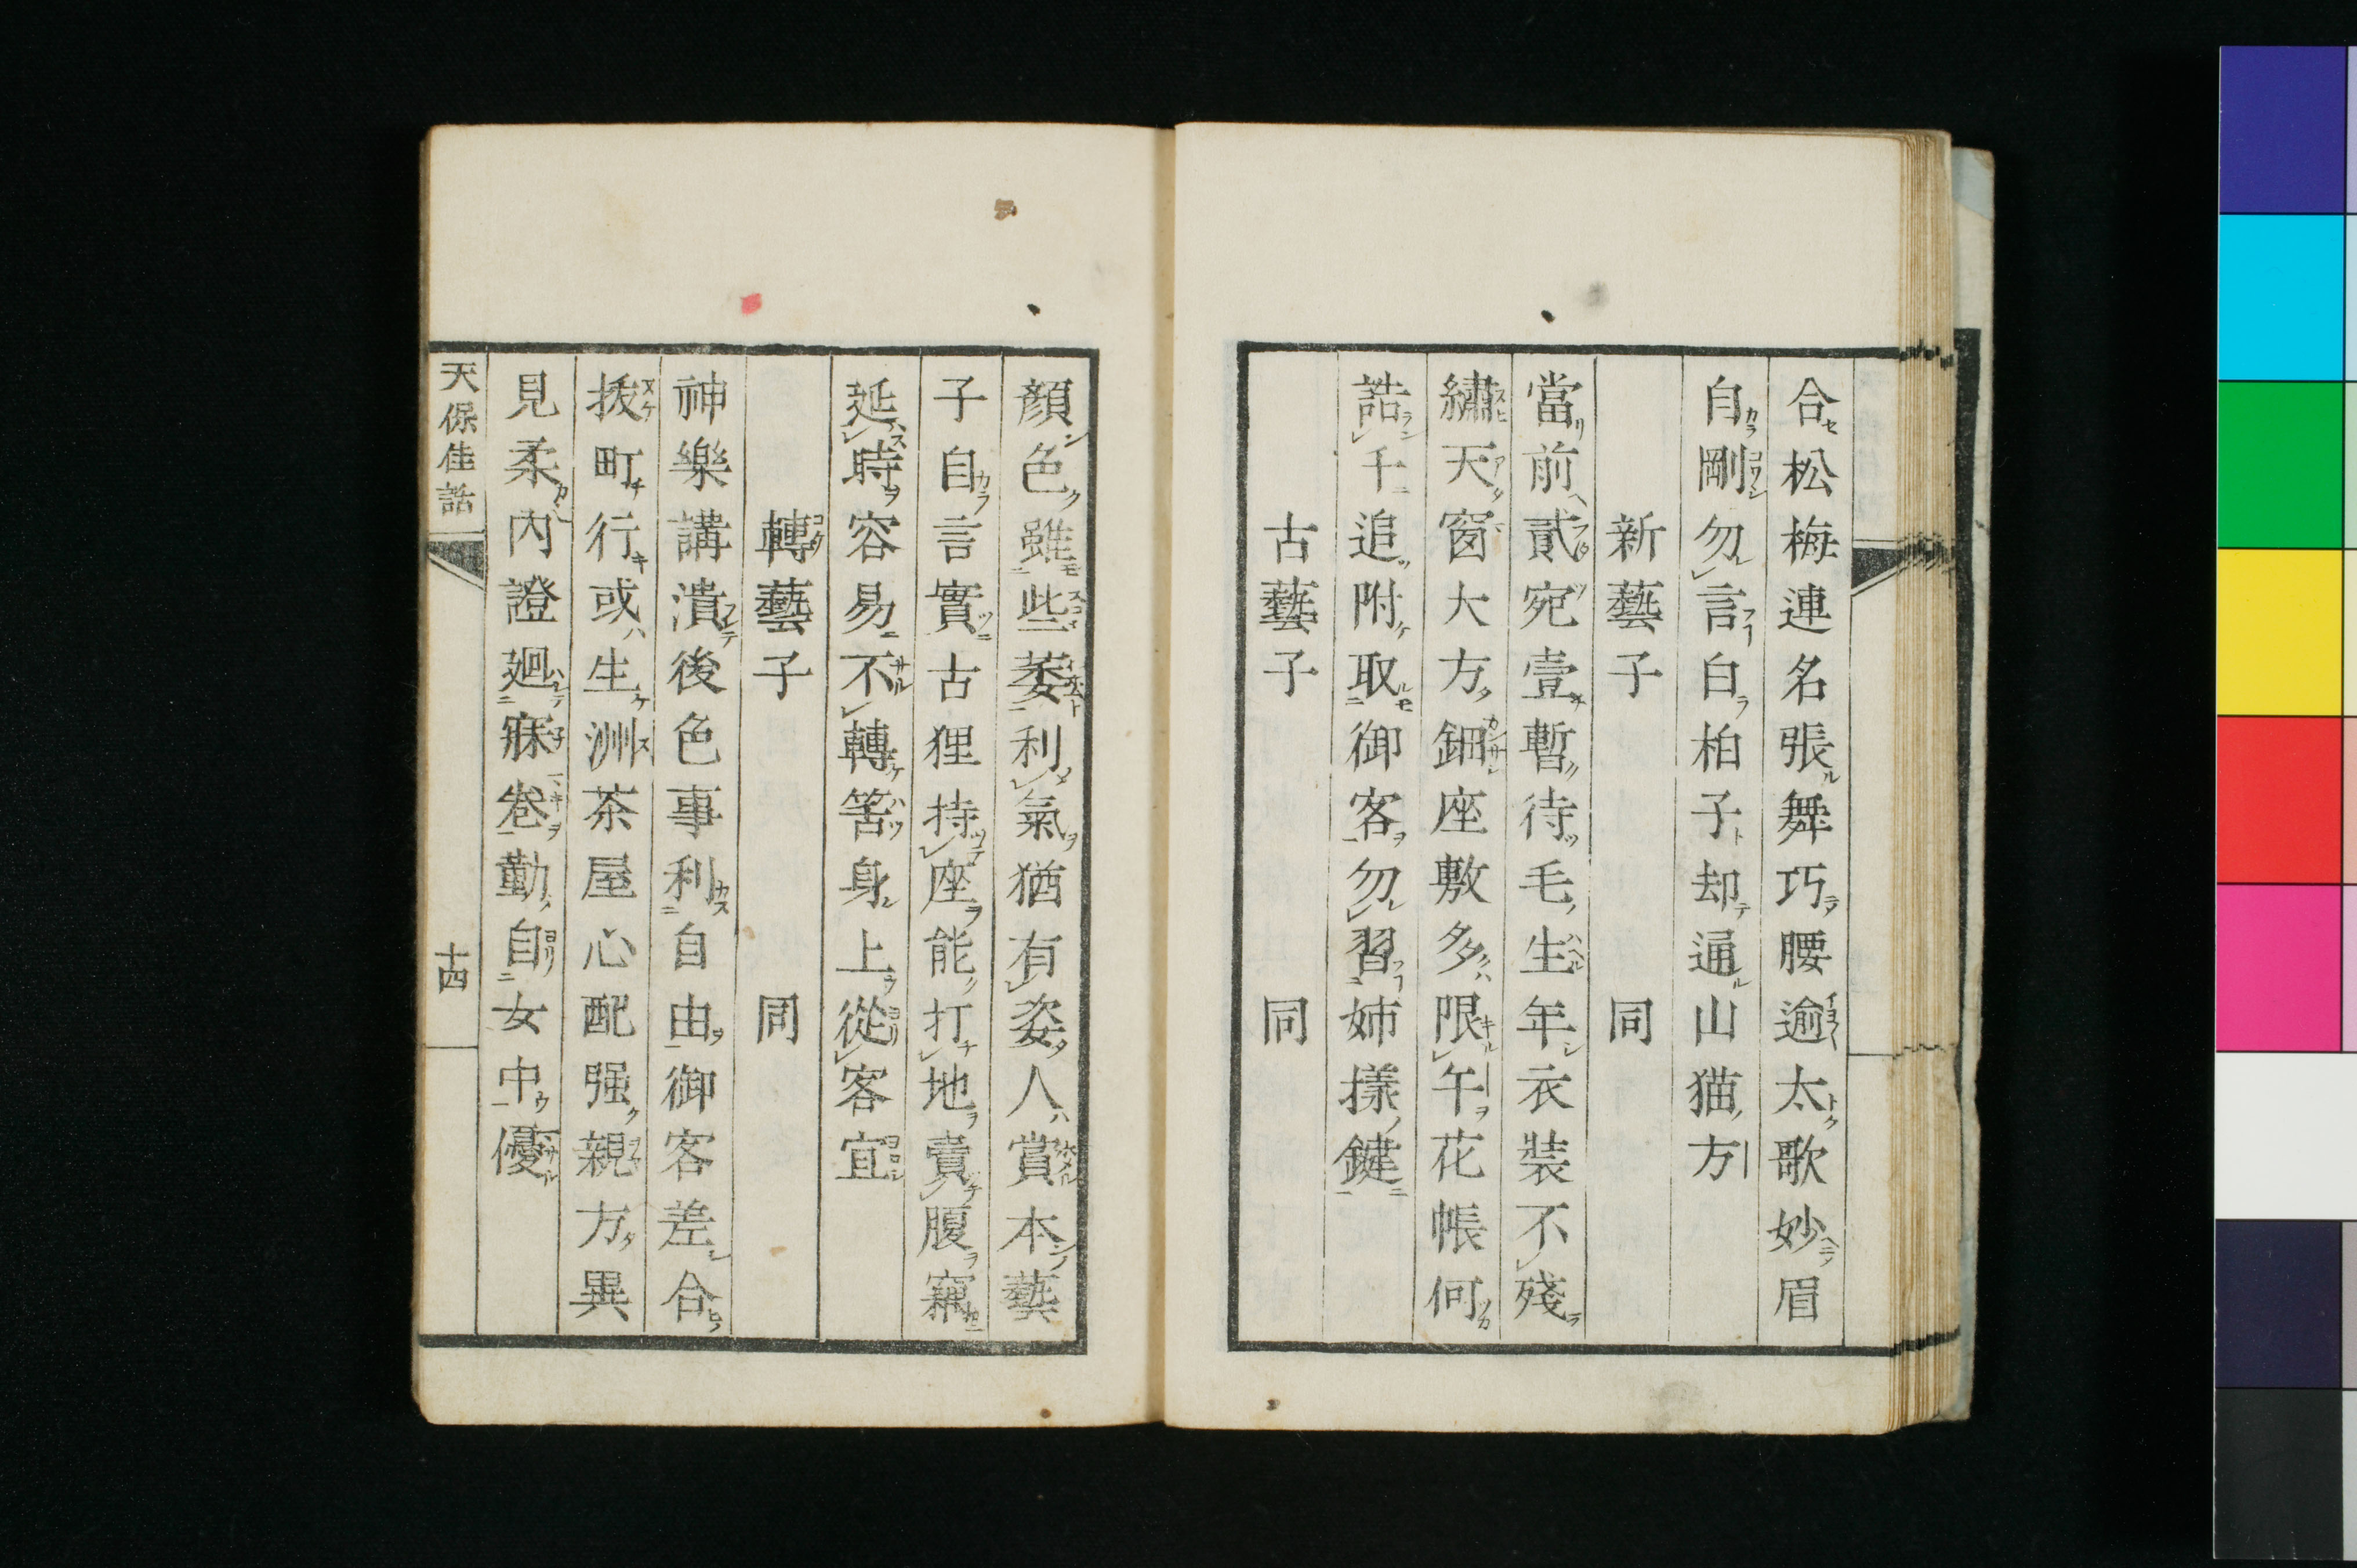 合松梅連名張舞巧腰逾太歌妙眉
自剛勿言白柏子却通山猫方
新藝子　同
當前貳宛壹暫待毛生年衣裝不殘
繡天窗大方鋼座敷多限午花帳何
誥千追附取御客勿習姉樣鍵
古藝子　同
顏色雖些萎利氣猶有姿人賞本藝
子自言實古狸持座能打地賣腹窺
延時容易不轉筈身上從客宜
轉藝子　同
神樂講潰後色事利自由御客差合
拔町行或生洲茶屋心配强親方異
見柔內證廻寐卷勤自女中優
天保佳話　十四